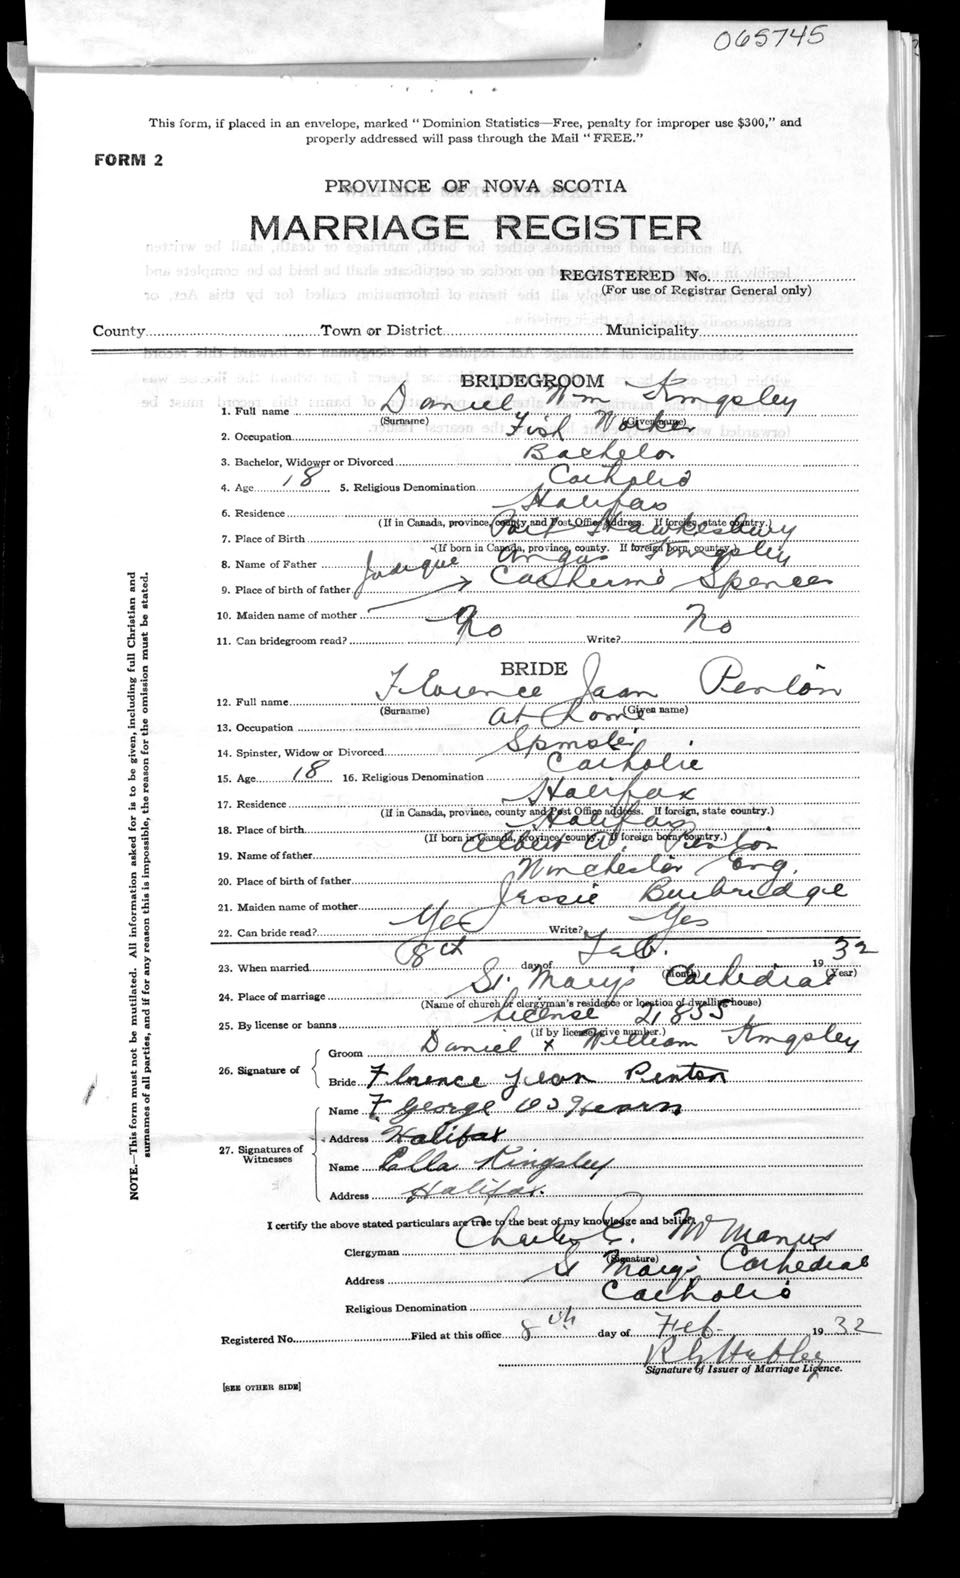 065745
This form, if placed in an envelope, marked " Dominion Statistics—Free, penalty for improper use $300," and
properly addressed will pass through the Mail " FREE."
FORM 2
PROVINCE OF NOVA SCOTIA
MARRIAGE REGISTER
REGISTERED No.
(For use of Registrar General only)
County Town or District Municipality
BRIDEGROOM
1. Full name Daniel Wm Kingsley
(Surname) (Given name)
2. Occupation Fish Worker
3. Bachelor, Widower or Divorced Bachelor
4. Age 18 5. Religious Denomination Catholic
6. Residence Halifax
(If in Canada, province, county and Post Office address. If foreign, state country.)
7. Place of Birth Port Hawkesbury
(If born in Canada, province, county. If foreign born, country.)
8. Name of Father Angus Kingsley
9. Place of birth of father Judique
10. Maiden name of mother Catherine Spencer
11. Can bridegroom read? No Write? No
BRIDE
12. Full name Florence Jean Penton
(Surname) (Given name)
13. Occupation at home
14. Spinster, Widow or Divorced Spinster
15. Age 18 16. Religious Denomination Catholic
17. Residence Halifax
(If in Canada, province, county and Post Office address. If foreign, state country.)
18. Place of birth Halifax
(If born in Canada, province/county. If foreign born/country.)
19. Name of father Albert W. Penton
20. Place of birth of father Winchester Eng.
21. Maiden name of mother Jessie Burbridge
22. Can bride read? Yes Write? Yes
23. When married 8th day of Feb. 1932
(Month) (Year)
24. Place of marriage St. Mary's Cathedral
(Name of church or clergyman's residence or location of dwelling house)
25. By license or banns License 21835
(If by license, give number.)
26. Signature of Groom Daniel x William Kingsley
Bride Florence Jean Penton
27. Signatures of Witnesses Name F George O'Hearn
Address Halifax
Name Ella Kingsley
Address Halifax.
I certify the above stated particulars are true to the best of my knowledge and belief.
Clergyman Charles C. McManus
(Signature)
Address St Mary's Cathedral
Religious Denomination Catholic
Registered No. Filed at this office 8th day of Feb. 1932
Signature of Issuer of Marriage Licence.
[SEE OTHER SIDE]
NOTE.—This form must not be mutilated. All information asked for is to be given, including full Christian and
surnames of all parties, and if for any reason this is impossible, the reason for the omission must be stated.